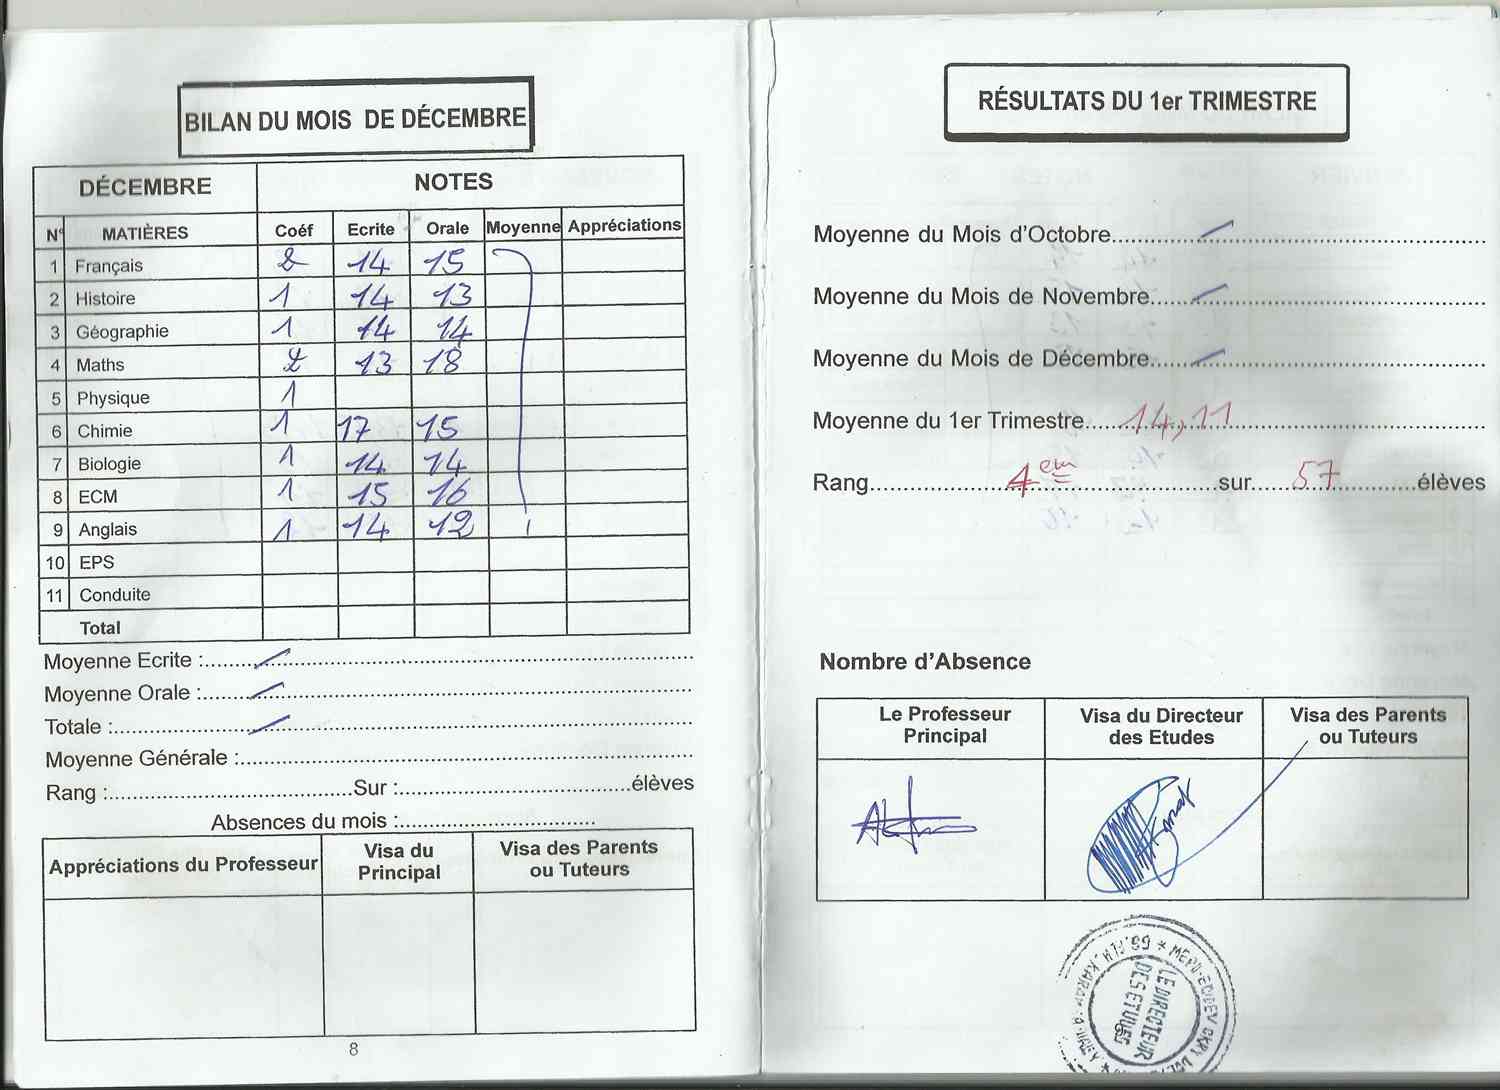 BILAN DU MOIS DE DÉCEMBRE
DÉCEMBRE NOTES
N° MATIÈRES Coéf Ecrite Orale Moyenne Appréciations
1 Français 2 14 15
2 Histoire 1 14 13
3 Géographie 1 14 14
4 Maths 2 13 18
5 Physique 1
6 Chimie 1 17 15
7 Biologie 1 14 14
8 ECM 1 15 16
9 Anglais 1 14 12
10 EPS
11 Conduite
Total
Moyenne Ecrite :
Moyenne Orale :
Totale :
Moyenne Générale :
Rang : Sur : élèves
Absences du mois :
Appréciations du Professeur
Visa du Principal
Visa des Parents ou Tuteurs
8
RÉSULTATS DU 1er TRIMESTRE
Moyenne du Mois d'Octobre
Moyenne du Mois de Novembre
Moyenne du Mois de Décembre
Moyenne du 1er Trimestre 14,11
Rang 4em sur 57 élèves
Nombre d'Absence
Le Professeur Principal
Visa du Directeur des Etudes
Visa des Parents ou Tuteurs
LE DIRECTEUR
DES ETUDES